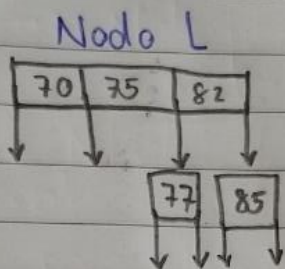 Nodo L
70 75 82
77 85